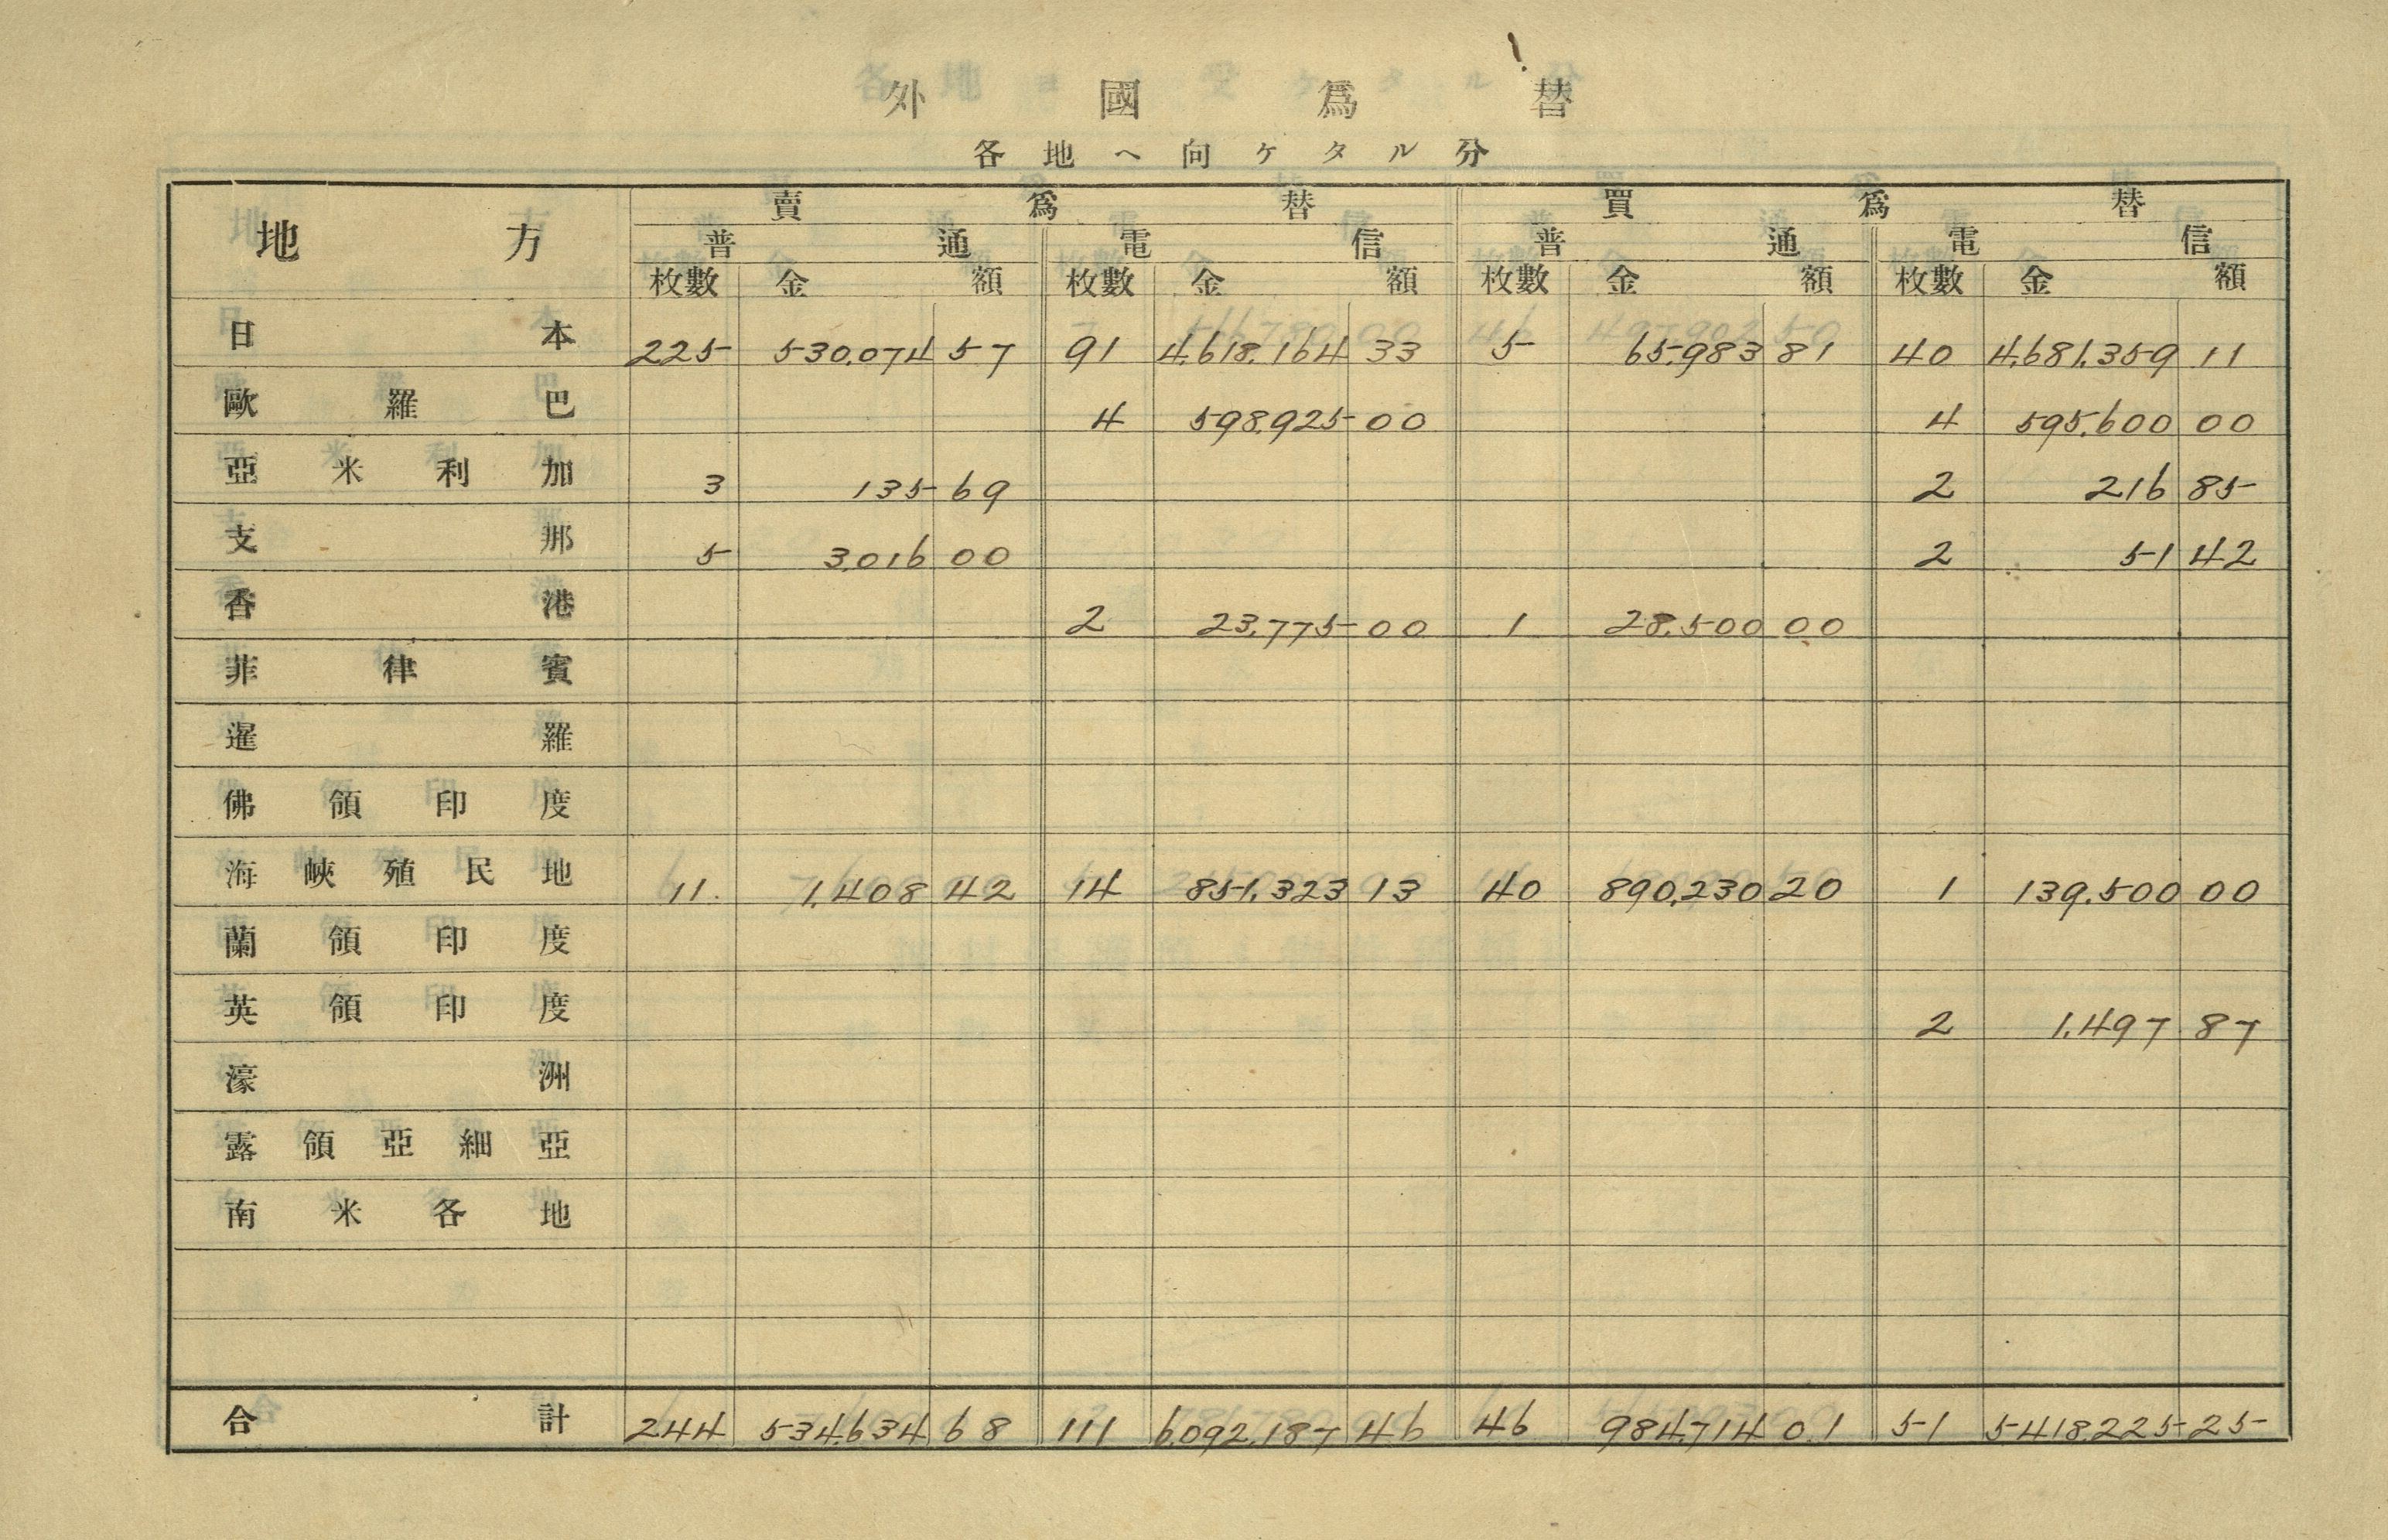 外國爲替
各地ヘ向ケタル分
地方 賣爲替 買爲替
普通 電信 普通 電信
枚數 金額 枚數 金額 枚數 金額 枚數 金額
日本 225 530,074 57 91 4,618,164 33 5 65,983 81 40 4,681,359 11
歐羅巴 4 598,925 00 4 595,600 00
亞米利加 3 135 69 2 216 85
支那 5 3,016 00 2 51 42
香港 2 23,775 00 1 28,500 00
菲律賓
暹羅
佛領印度
海峽殖民地 11 1,408 42 14 851,323 13 40 890,230 20 1 139,500 00
蘭領印度
英領印度 2 1,497 87
濠洲
露領亞細亞
南米各地
合計 244 534,634 68 111 6,092,187 46 46 984,714 01 51 5,418,225 25